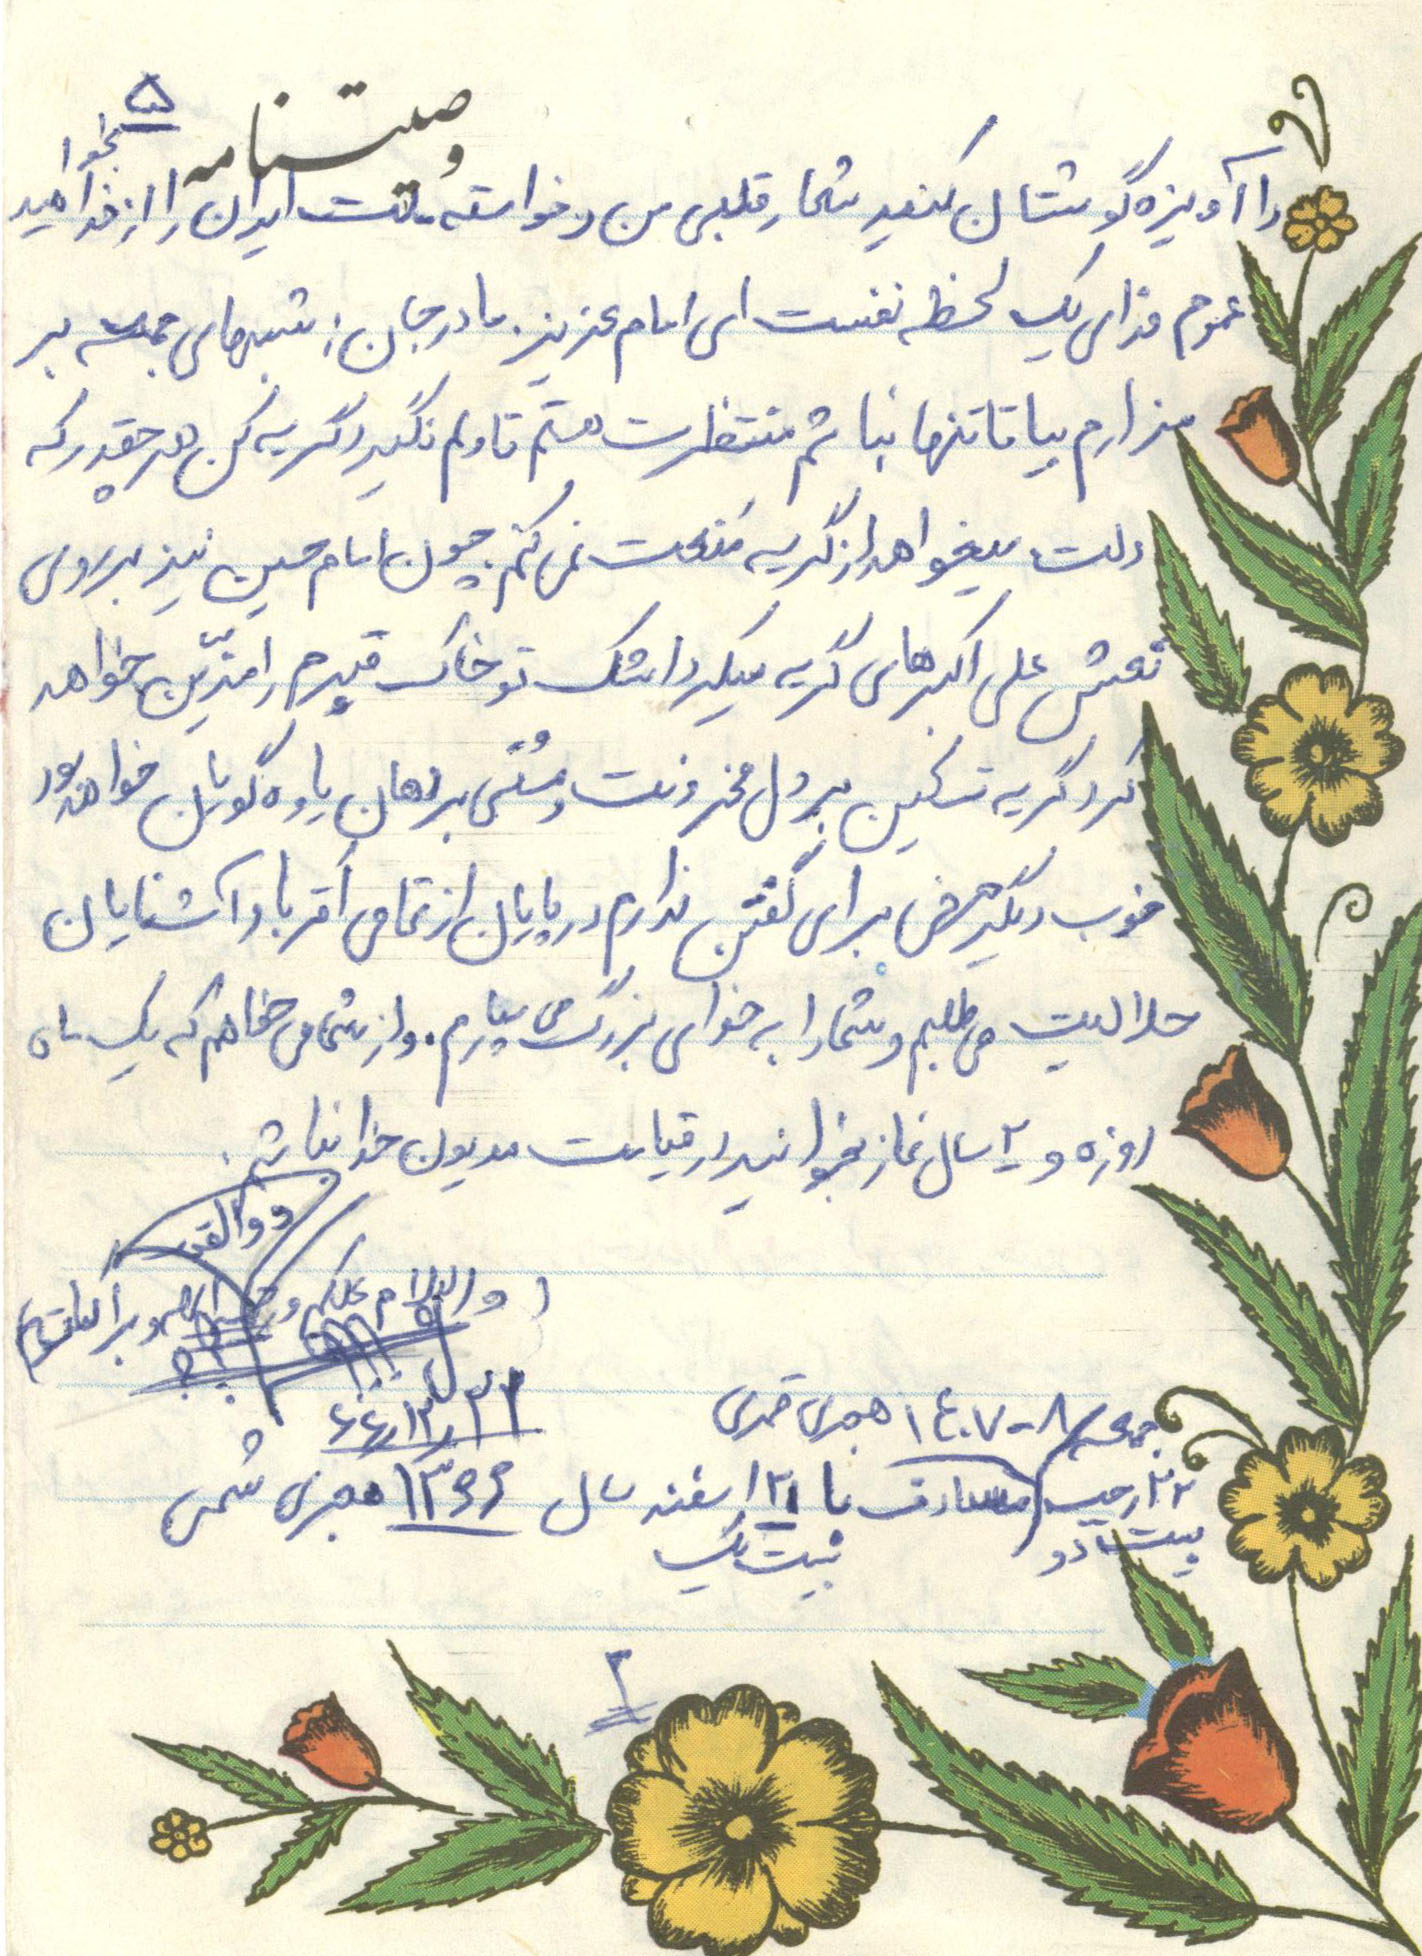 وصیتنامه
۵
را آویزه گوشتان کنید شعار قلبی من و خواسته ملت ایران را از خدا بخواهید
عمرم فدای یک لحظه نفست ای امام عزیز. مادر جان: شبهای جمعه بر
مزارم بیا تا تنها نباشم منتظرت هستم تا دلم نگیرد گریه کن هر چقدر که
دلت میخواهد از گریه منعت نمی کنم چون امام حسین نیز بر روی
نعش علی اکبرهای گریه میکرد اشک تو خاک قبرم را مزین خواهد
کرد گریه تسکین بر دل محزونت و مشتی بر دهان یاوه گویان خواهد بود
خوب دیگر عرضی برای گفتن ندارم در پایان از تمامی اقربا و آشنایان
حلالیت می طلبم و شما را به خدای بزرگ می سپارم. و از شما می خواهم که یک ماه
روزه و ۲ سال نماز بخوانید در قیامت مدیون خدا نباشم.
ذوالقدر
(والسلام علیکم و رحمة الله و برکاته)
۶۶/۱۲/۲۱
جمعه ۱۴۰۷-۸ هجری قمری
۲۲ رجب مصادف با ۲۱ اسفند سال ۱۳۶۶ هجری شمسی
بیست و دو بیست یک
۲